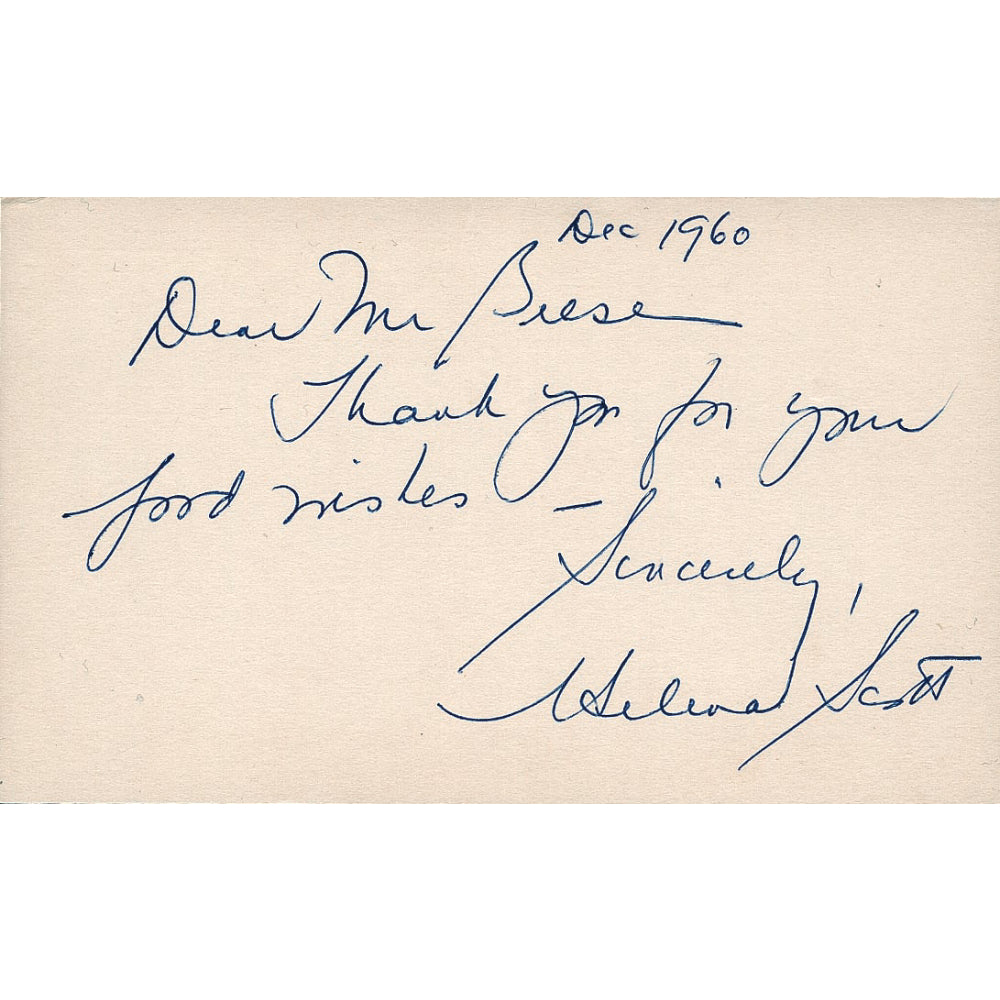 Dec 1960
Dear Mr Biese
Thank you for your
good wishes –
Sincerely,
Helena Scott